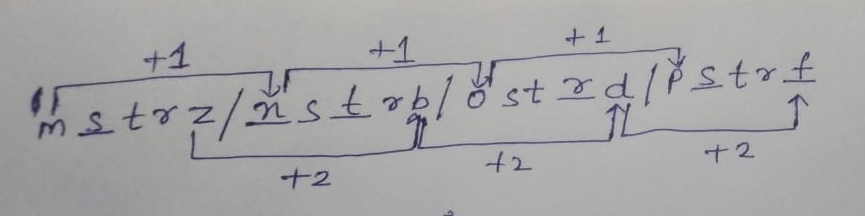 +1 +1 +1
m s t r z / n s t r b / o s t r d / p s t r f
+2 +2 +2